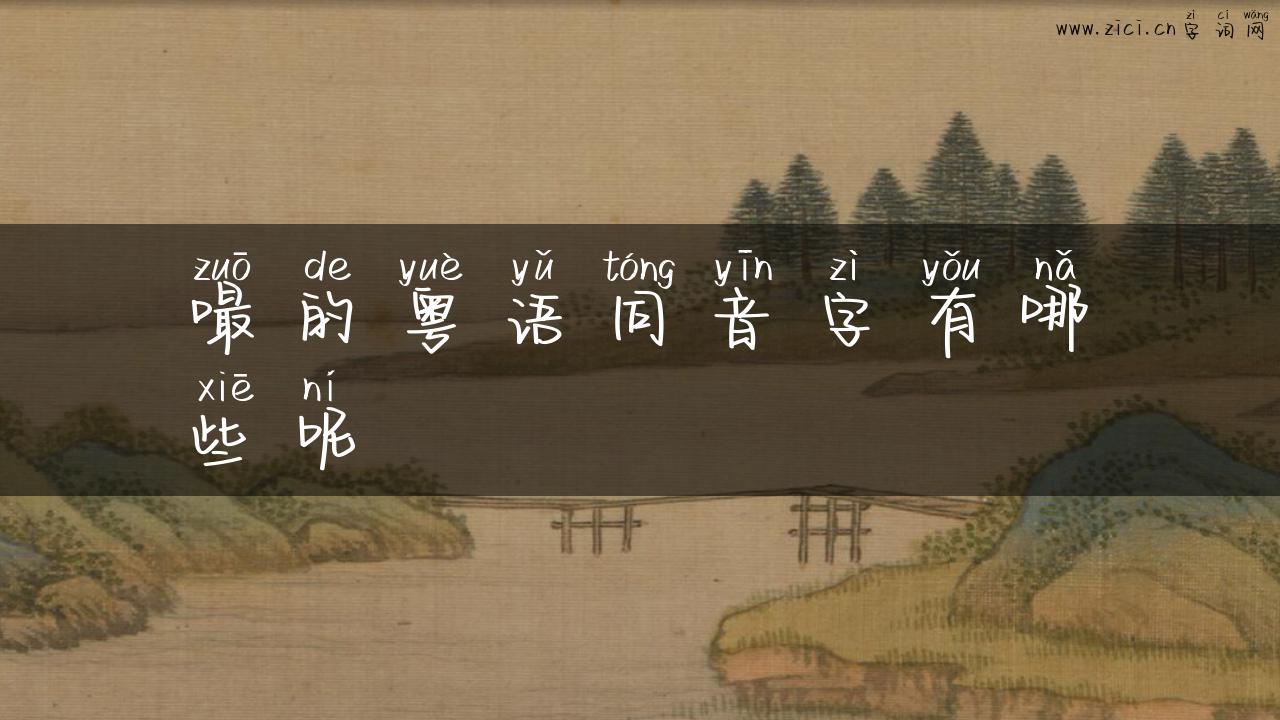 www.zici.cn字词网
zì cí wǎng
zuō de yuè yǔ tóng yīn zì yǒu nǎ
嘬的粤语同音字有哪
xiē ní
些呢